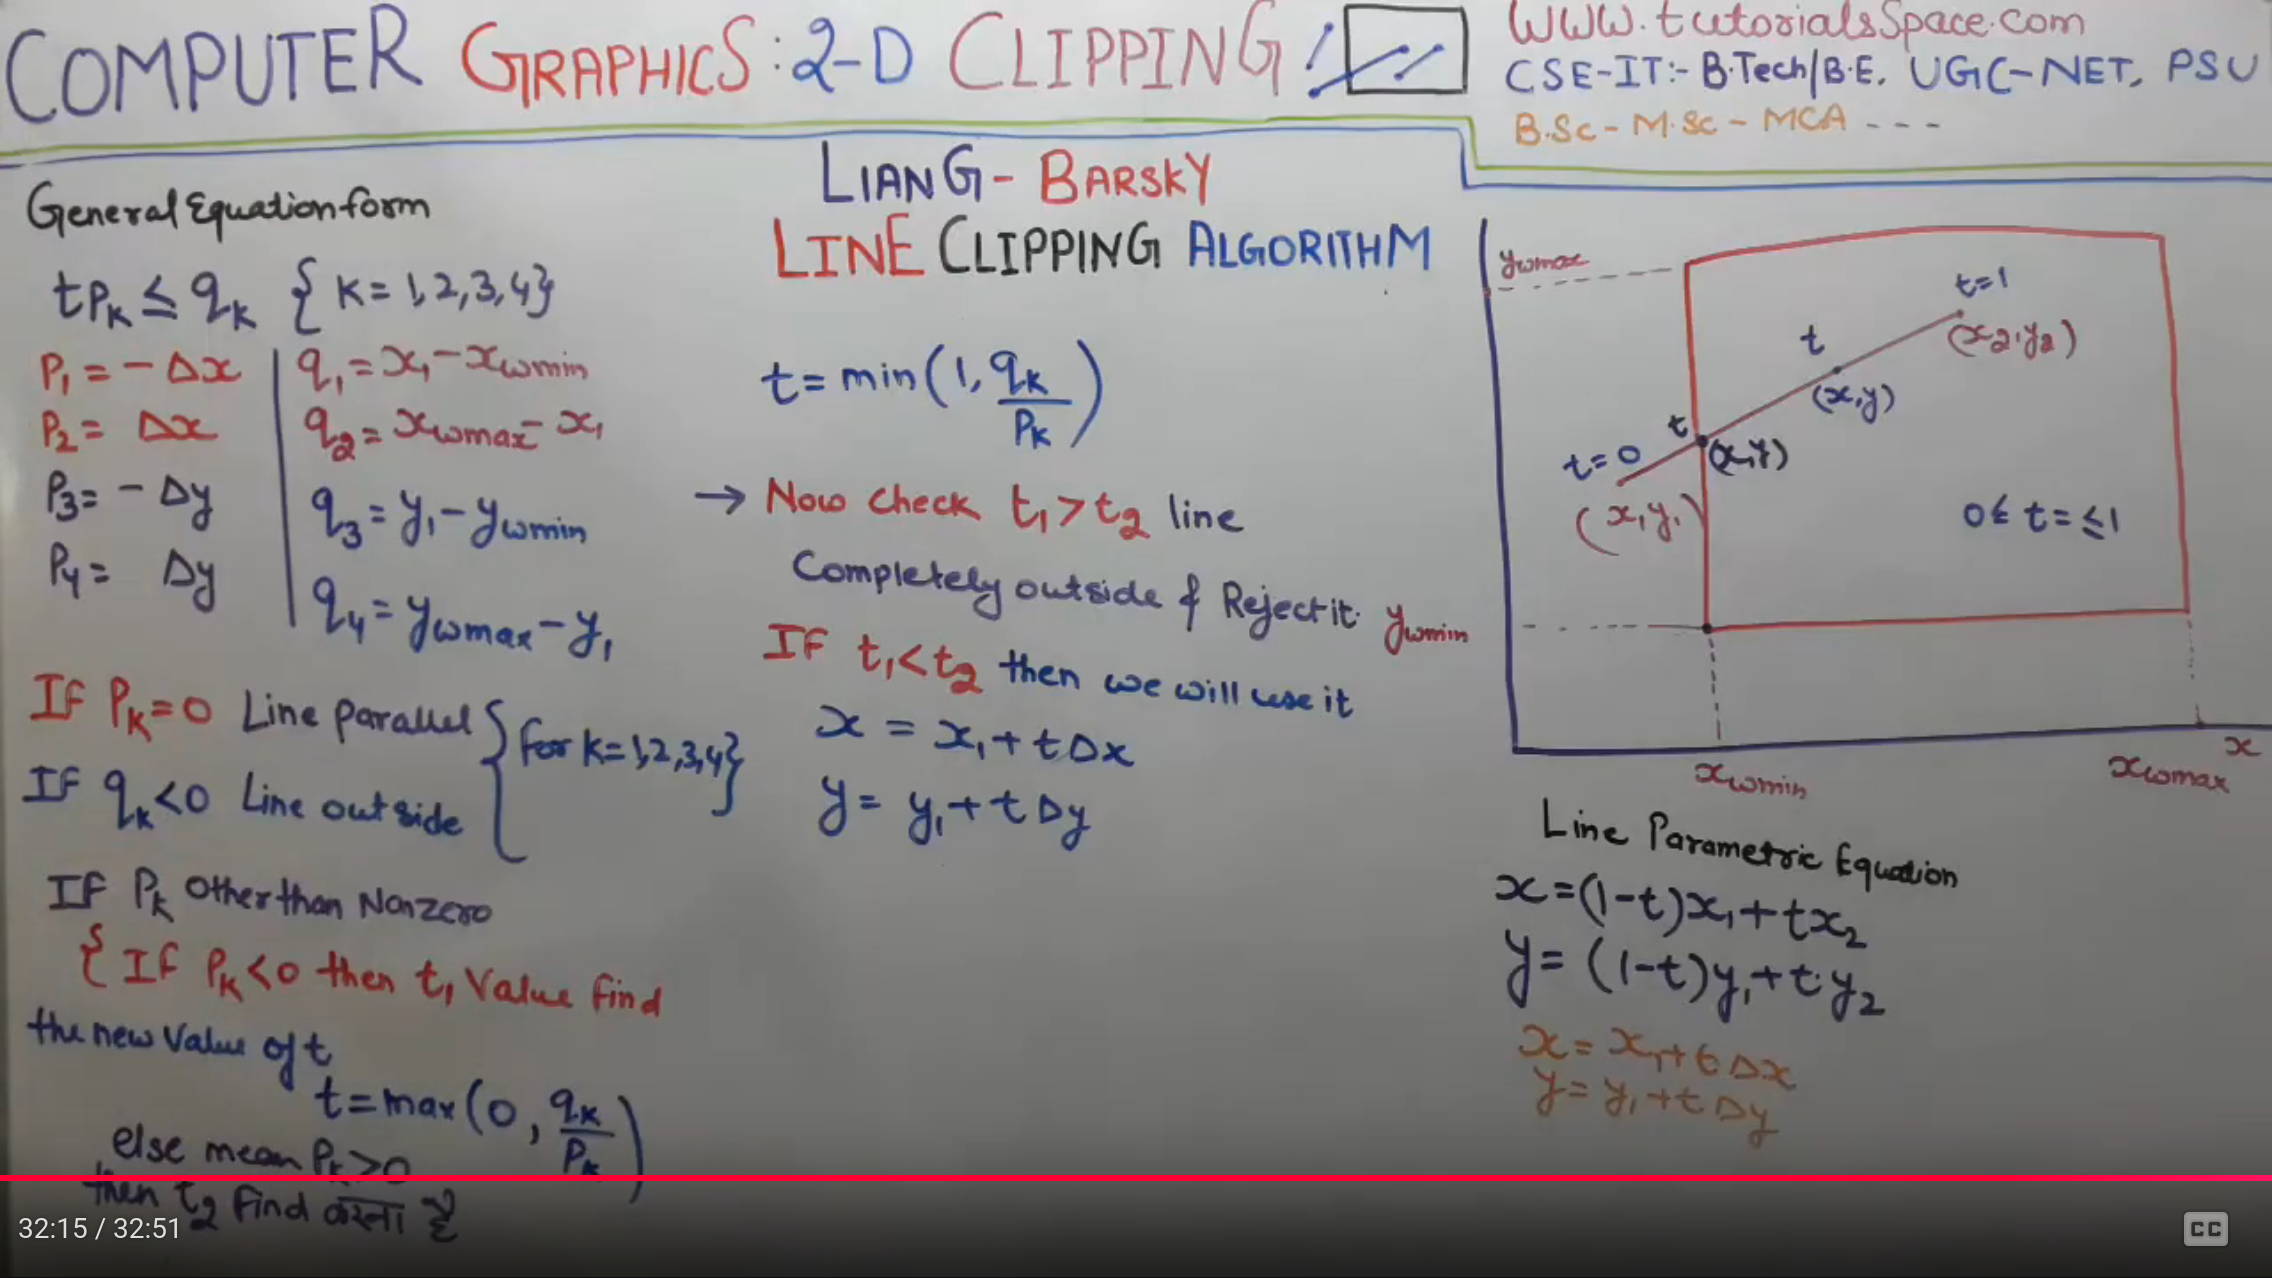 COMPUTER GRAPHICS: 2-D CLIPPING
www.tutorialsSpace.com
CSE-IT:- B.Tech/B.E, UGC-NET, PSU
B.Sc - M.Sc - MCA ---
LIANG-BARSKY
LINE CLIPPING ALGORITHM
General Equation form
tPk ≤ qk { K = 1,2,3,4}
P1 = - Δx | q1 = x1 - xwmin
P2 = Δx | q2 = xwmax - x1
P3 = - Δy | q3 = y1 - ywmin
P4 = Δy | q4 = ywmax - y1
If Pk = 0 Line parallel
If qk < 0 Line outside
{for k = 1,2,3,4}
If Pk Other than Nonzero
{ If Pk < 0 then t1 Value find
the new value of t
t = max(0, qk/Pk)
else mean Pk > 0
then t2 find करना है
t = min(1, qk/Pk)
→ Now check t1 > t2 line
Completely outside & Reject it
If t1 < t2 then we will use it
x = x1 + tΔx
y = y1 + tΔy
ywmax
t=1
(x2,y2)
t
(x,y)
t
(x,y)
t=0
(x1y1)
0≤ t = ≤1
ywmin
xwmin
xwmax
x
Line Parametric Equation
x = (1-t)x1 + tx2
y = (1-t)y1 + t.y2
x = x1 + tΔx
y = y1 + tΔy
32:15 / 32:51
CC